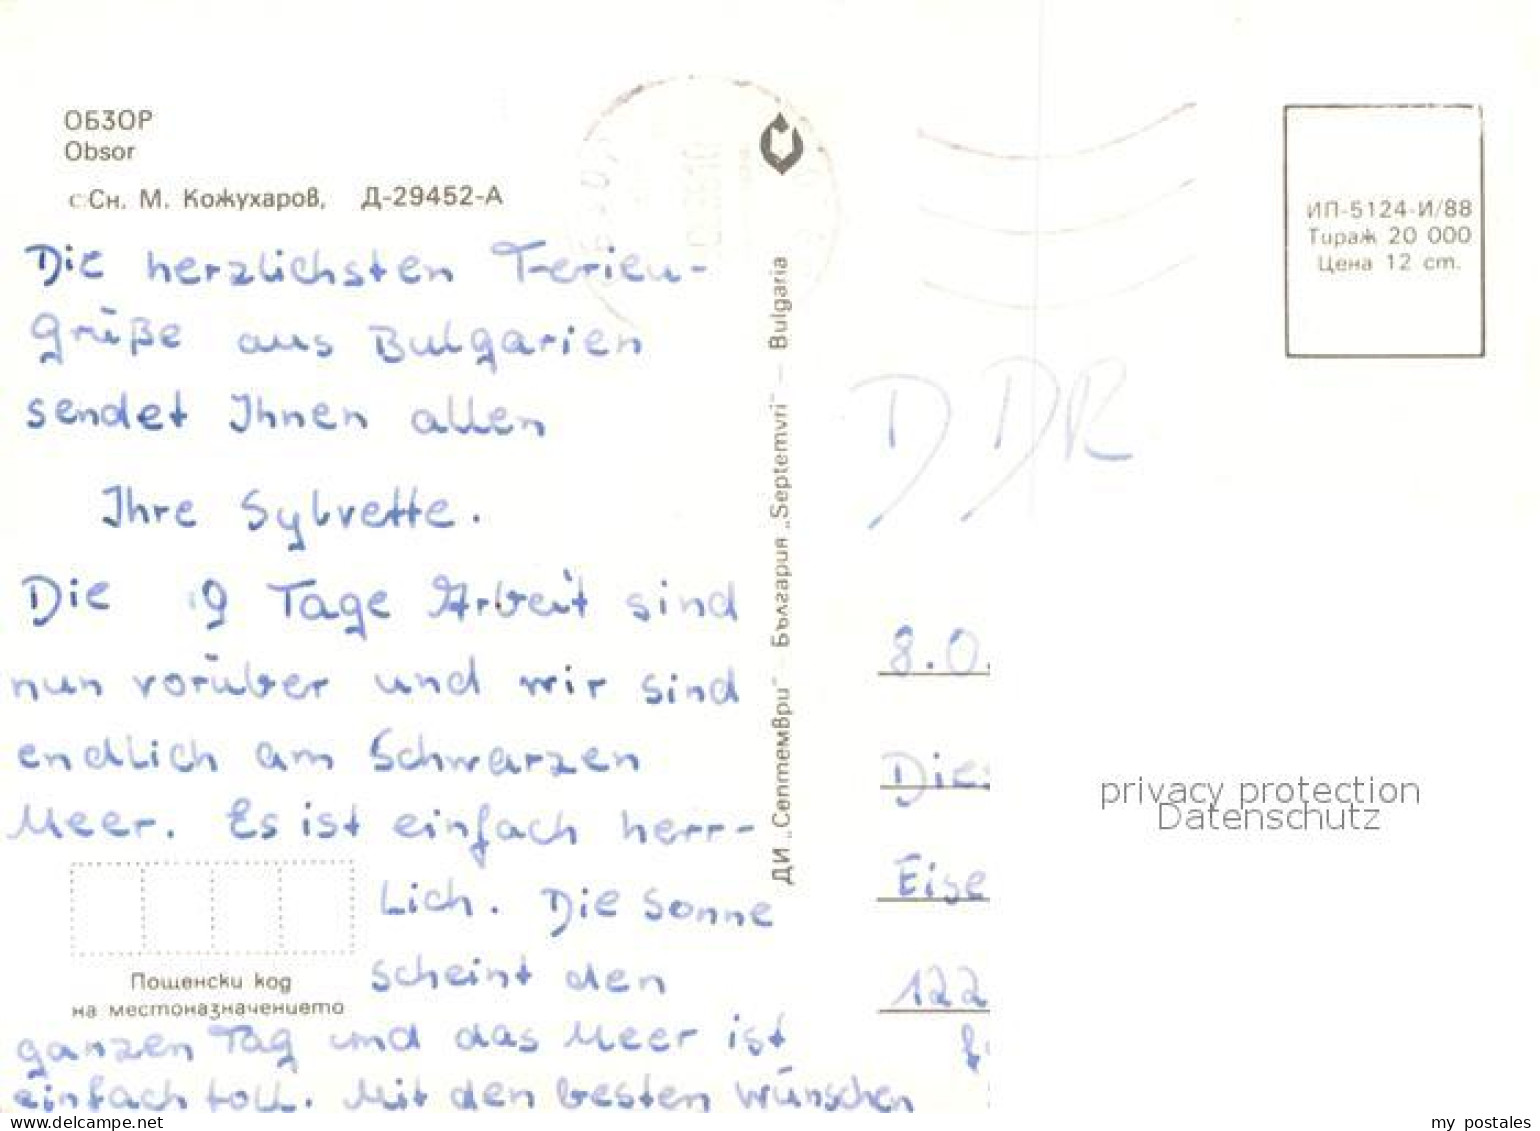 ОБЗОР
Obsor
с Сн. М. Кожухаров, Д-29452-А
Die herzlichsten Ferien-
grüße aus Bulgarien
sendet Ihnen allen
Ihre Sylvette.
Die 9 Tage Arbeit sind
nun vorüber und wir sind
endlich am Schwarzen
Meer. Es ist einfach herr-
lich. Die Sonne
scheint den
ganzen Tag und das Meer ist
einfach toll. Mit den besten Wünschen
Пощенски код
на местоназначението
ДИ „Септември" — България „Septemvri" — Bulgaria
ИП-5124-И/88
Тираж 20 000
Цена 12 ст.
DDR
8.0.
Die
Eise
122
privacy protection
Datenschutz
www.delcampe.net
my_postales